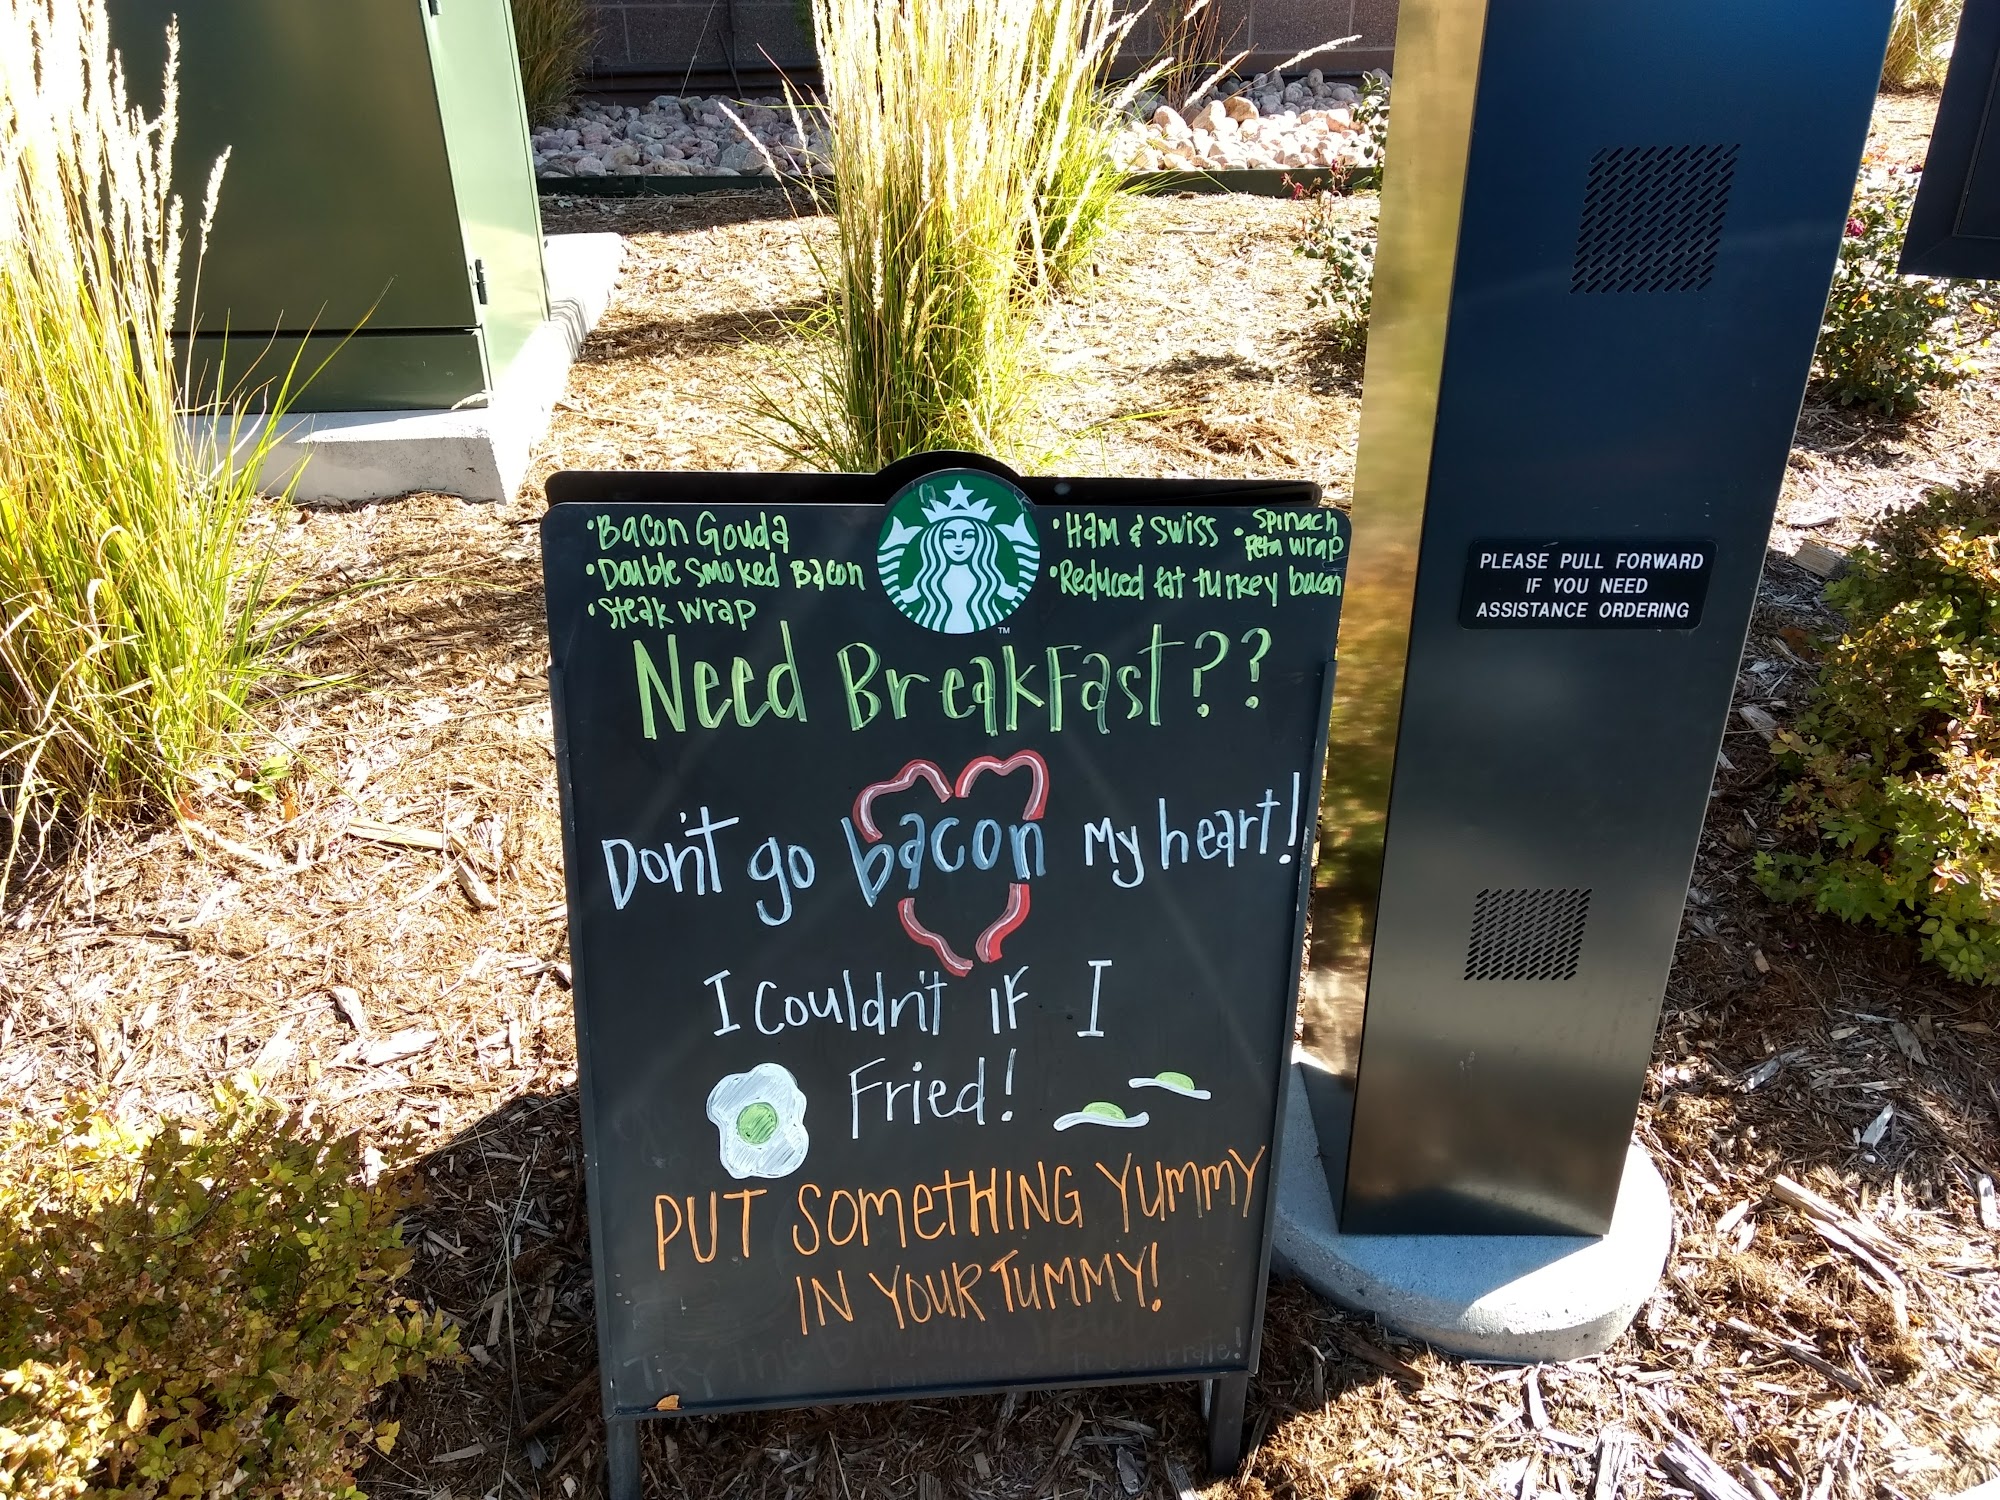 •Bacon Gouda
•Double Smoked Bacon
•Steak wrap
•Ham & Swiss
•Spinach
Feta wrap
•Reduced fat turkey bacon
TM
Need Breakfast??
Don't go bacon My heart!
I couldn't if I
Fried!
PUT SOMETHING YUMMY
IN YOUR TUMMY!
TRY The
PLEASE PULL FORWARD
IF YOU NEED
ASSISTANCE ORDERING